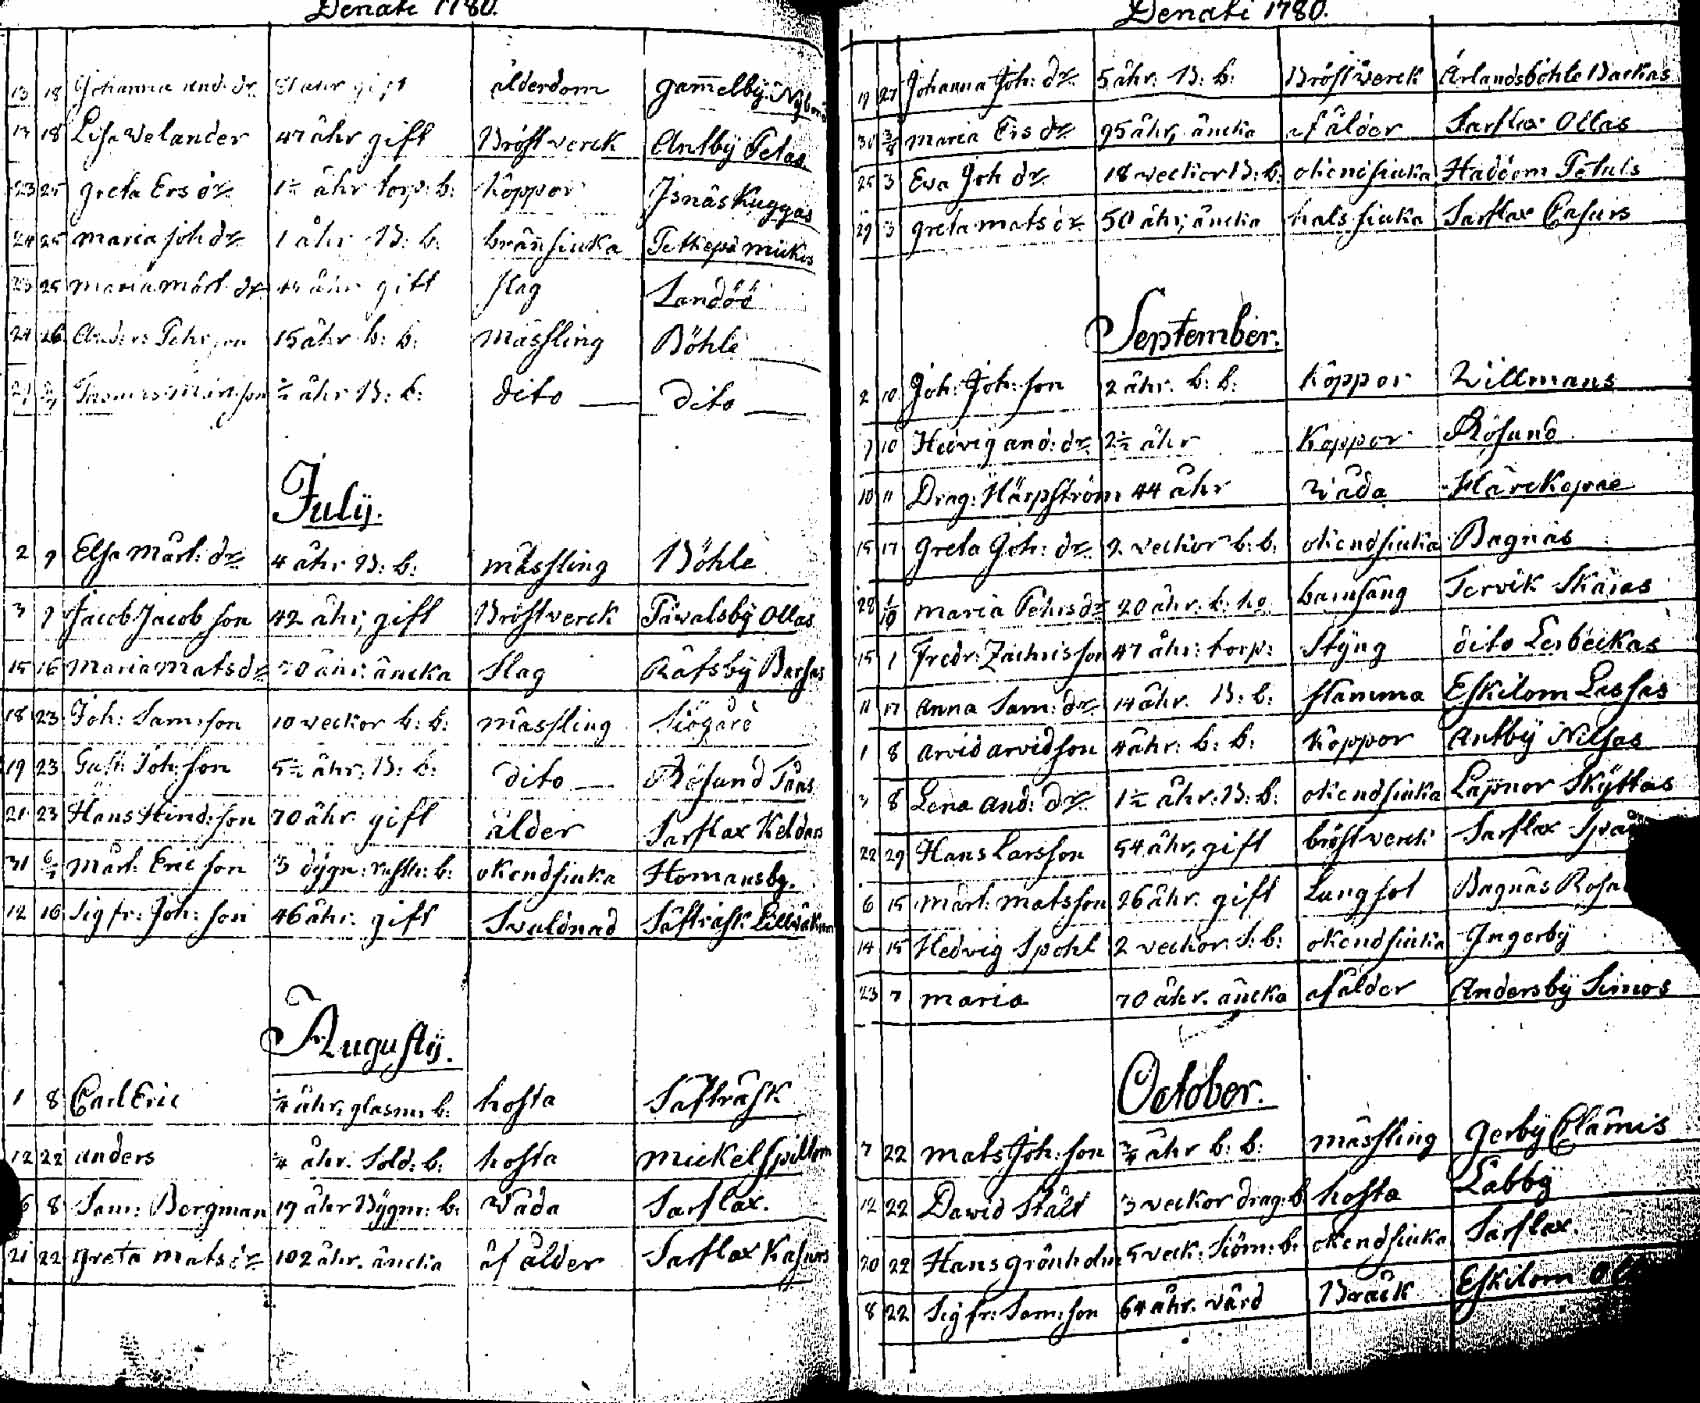 Denati 1780.
13 18 Johanna And: dr. ähr gift ålderdom Gam̄elby
13 18 Lisa Velander 47 ähr gift Bröstverck Antby Petas
23 25 Greta Ers dr. 1½ ähr torp: b: Koppor Isnäs Kuggas
24 25 Maria Joh dr. 1 ähr B: b: brän̄siuka Tetkopå Mickes
23 25 Maria Mårt: dr. ähr gift slag Sandöö
24 26 Anders Pehrson 15 ähr b: b: mässling Böhle
ähr B: b: dito dito
July.
2 9 Elsa Mårt: dr. 4 ähr B: b: mässling Böhle
3 9 Jacob Jacobson 42 ähr, gift Bröstverck Tåvalsby Ollas
15 16 Maria Mats dr. 70 ähr: äncka slag Råtsby Bassas
18 23 Joh: Sam: son 10 veckor b: b: mässling Siögård
19 23 Gust: Joh: son 5½ ähr: B: b: dito Rösund
21 23 Hans Hind: son 70 ähr. gift ålder Sarflax Keldars
31 6/7 Mårt: Ericson 3 dygn: rustr: b: okendsiuka Homansby.
12 16 Sigfr: Joh: son 46 ähr. gift Svuldnad Säfträsk
Augusty.
1 8 Carl Eric ¼ ähr, glasm: b: hosta Säfträsk
12 22 Anders ¼ ähr. Sold: b: hosta Mickelspiltom
6 8 Sam: Bergman 19 ähr Bygm: b: Våda Sarflax.
21 22 Greta Mats dr. 102 ähr. äncka af ålder Sarflax Kasurs
Denati 1780.
19 27 Johanna Joh: dr. 5 ähr. B: b: Bröstverck Ärlandsböhle Backas
30 3/8 Maria Ers dr. 95 ähr, äncka af ålder Sarflax Ollas
25 3 Eva Joh dr. 18 veckor B: b: okendsiuka Haddom Petals
29 3 Greta Mats dr. 50 ähr, äncka halssiuka Sarflax Casurs
September.
2 10 Joh: Joh: son 2 ähr. b: b: Koppor Willmans
7 10 Hedvig And: dr. 2½ ähr Koppor Rösund
10 11 Drag: Härpström 44 ähr våda Härckopae
15 17 Greta Joh: dr. 2 veckor b: b: okendsiuka Bagnäs
28 1/10 Maria Pehrs dr. 20 ähr: b: ho barnsäng Tervik Skäias
15 1 Fredr: Zachrisson 47 ähr: torp: Styng dito Lerbeckas
11 17 Anna Sam: dr. 14 ähr. B: b: stämma Eskilom Lassas
1 8 Arvid Arvidson 4 ähr: b: b: Koppor Antby Nilsas
3 8 Lena And: dr. 1½ ähr: B: b: okendsiuka Lapnor Skyttas
22 29 Hans Larsson 54 ähr, gift bröstverck Sarflax
6 15 Mårt: Matsson 26 ähr. gift Lungsot Bagnäs
14 15 Hedvig Spohl 2 veckor S: b: okendsiuka Ingerby
23 7 Maria 70 ähr. äncka af ålder Andersby Simos
October.
7 22 Mats Joh: son ¾ ähr b: b: mässling Gerby Clämis
12 22 David Stålt 3 veckor drag: b. hosta Labby
20 22 Hans Grönholm 5 veck: Siöm: b: okendsiuka Sarflax.
8 22 Sigfr: Sam: son 64 ähr. värd Bråck Eskilom